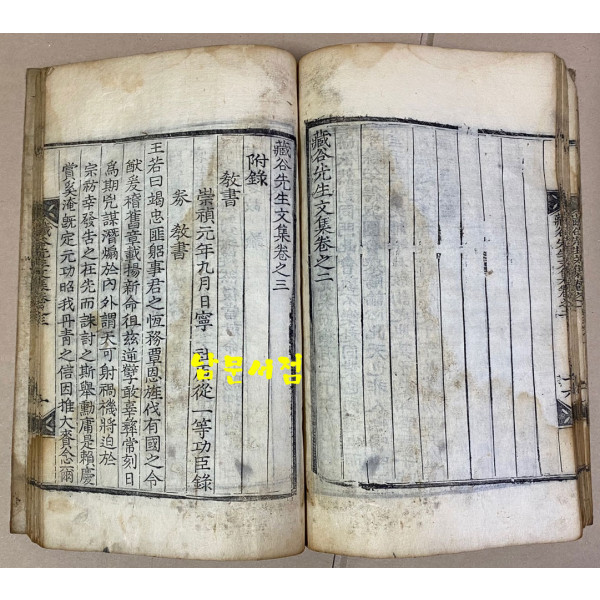 藏谷先生文集卷之二
藏谷先生文集卷之三
附錄
敎書
崇禎元年九月日寧 從一等功臣錄
券 敎書
王若曰竭忠匪躬事君之恆務覃恩旌伐有國之令
猷爰稽舊章載揚新命徂玆逆孼敢睾彝常刻日
爲期兇謀潛煽於內外謂天可射禍機將迫於
宗祊幸發告之在先而誅討之斯擧勳庸是賴慶
賞奚淹旣定元功昭我丹靑之信因推大賚念爾
남문서점